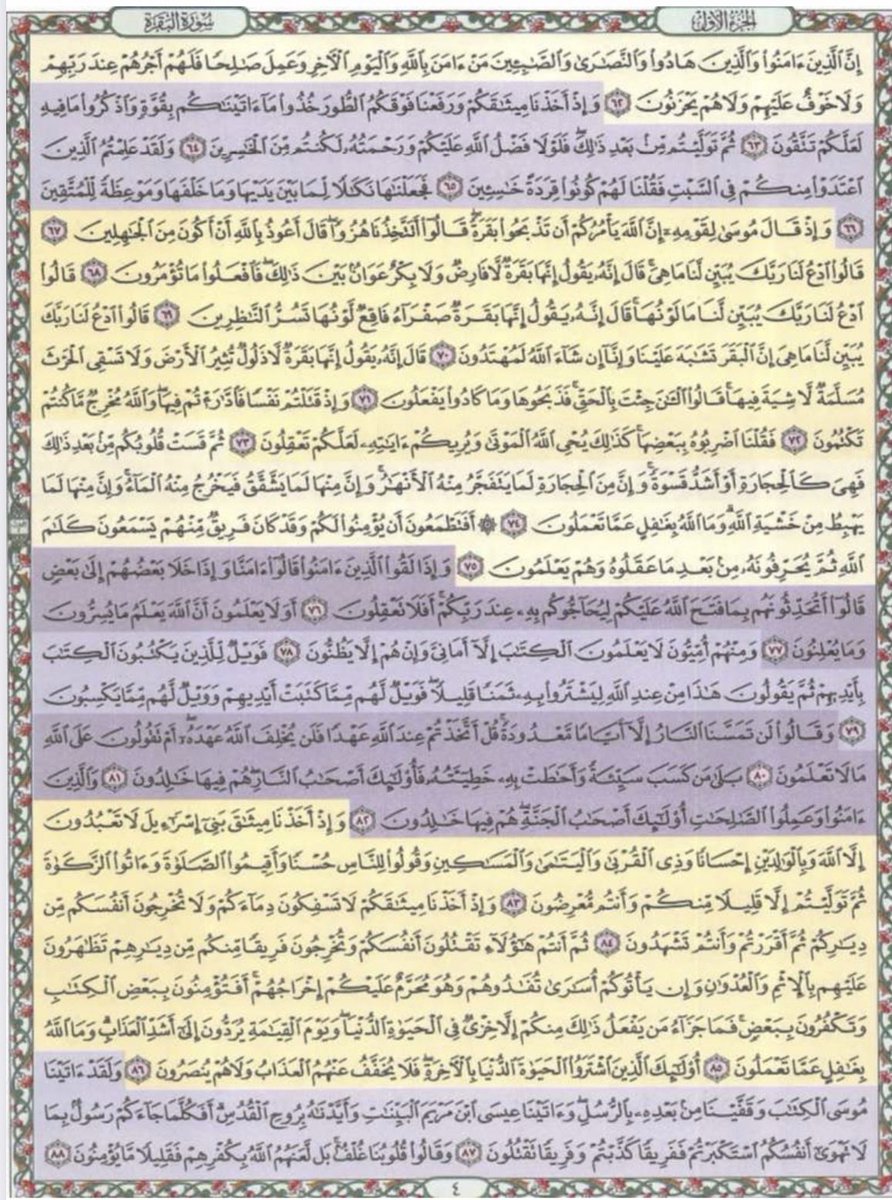 الجزء الأول
سورة البقرة
إِنَّ الَّذِينَ ءَامَنُوا۟ وَالَّذِينَ هَادُوا۟ وَالنَّصَٰرَىٰ وَالصَّٰبِـِٔينَ مَنْ ءَامَنَ بِاللَّهِ وَالْيَوْمِ الْءَاخِرِ وَعَمِلَ صَٰلِحًا فَلَهُمْ أَجْرُهُمْ عِندَ رَبِّهِمْ
وَلَا خَوْفٌ عَلَيْهِمْ وَلَا هُمْ يَحْزَنُونَ ٦٢ وَإِذْ أَخَذْنَا مِيثَٰقَكُمْ وَرَفَعْنَا فَوْقَكُمُ الطُّورَ خُذُوا۟ مَآ ءَاتَيْنَٰكُم بِقُوَّةٍ وَاذْكُرُوا۟ مَا فِيهِ
لَعَلَّكُمْ تَتَّقُونَ ٦٣ ثُمَّ تَوَلَّيْتُم مِّنۢ بَعْدِ ذَٰلِكَ ۖ فَلَوْلَا فَضْلُ اللَّهِ عَلَيْكُمْ وَرَحْمَتُهُۥ لَكُنتُم مِّنَ الْخَٰسِرِينَ ٦٤ وَلَقَدْ عَلِمْتُمُ الَّذِينَ
اعْتَدَوْا۟ مِنكُمْ فِى السَّبْتِ فَقُلْنَا لَهُمْ كُونُوا۟ قِرَدَةً خَٰسِـِٔينَ ٦٥ فَجَعَلْنَٰهَا نَكَٰلًا لِّمَا بَيْنَ يَدَيْهَا وَمَا خَلْفَهَا وَمَوْعِظَةً لِّلْمُتَّقِينَ
٦٦ وَإِذْ قَالَ مُوسَىٰ لِقَوْمِهِۦٓ إِنَّ اللَّهَ يَأْمُرُكُمْ أَن تَذْبَحُوا۟ بَقَرَةً ۖ قَالُوٓا۟ أَتَتَّخِذُنَا هُزُوًا ۖ قَالَ أَعُوذُ بِاللَّهِ أَنْ أَكُونَ مِنَ الْجَٰهِلِينَ ٦٧
قَالُوا۟ ادْعُ لَنَا رَبَّكَ يُبَيِّن لَّنَا مَا هِىَ ۚ قَالَ إِنَّهُۥ يَقُولُ إِنَّهَا بَقَرَةٌ لَّا فَارِضٌ وَلَا بِكْرٌ عَوَانٌۢ بَيْنَ ذَٰلِكَ ۖ فَافْعَلُوا۟ مَا تُؤْمَرُونَ ٦٨ قَالُوا۟
ادْعُ لَنَا رَبَّكَ يُبَيِّن لَّنَا مَا لَوْنُهَا ۚ قَالَ إِنَّهُۥ يَقُولُ إِنَّهَا بَقَرَةٌ صَفْرَآءُ فَاقِعٌ لَّوْنُهَا تَسُرُّ النَّٰظِرِينَ ٦٩ قَالُوا۟ ادْعُ لَنَا رَبَّكَ
يُبَيِّن لَّنَا مَا هِىَ إِنَّ الْبَقَرَ تَشَٰبَهَ عَلَيْنَا وَإِنَّآ إِن شَآءَ اللَّهُ لَمُهْتَدُونَ ٧٠ قَالَ إِنَّهُۥ يَقُولُ إِنَّهَا بَقَرَةٌ لَّا ذَلُولٌ تُثِيرُ الْأَرْضَ وَلَا تَسْقِى الْحَرْثَ
مُسَلَّمَةٌ لَّا شِيَةَ فِيهَا ۚ قَالُوا۟ الْـَٰٔنَ جِئْتَ بِالْحَقِّ ۚ فَذَبَحُوهَا وَمَا كَادُوا۟ يَفْعَلُونَ ٧١ وَإِذْ قَتَلْتُمْ نَفْسًا فَادَّٰرَْٰٔتُمْ فِيهَا ۖ وَاللَّهُ مُخْرِجٌ مَّا كُنتُمْ
تَكْتُمُونَ ٧٢ فَقُلْنَا اضْرِبُوهُ بِبَعْضِهَا ۚ كَذَٰلِكَ يُحْىِ اللَّهُ الْمَوْتَىٰ وَيُرِيكُمْ ءَايَٰتِهِۦ لَعَلَّكُمْ تَعْقِلُونَ ٧٣ ثُمَّ قَسَتْ قُلُوبُكُم مِّنۢ بَعْدِ ذَٰلِكَ
فَهِىَ كَالْحِجَارَةِ أَوْ أَشَدُّ قَسْوَةً ۚ وَإِنَّ مِنَ الْحِجَارَةِ لَمَا يَتَفَجَّرُ مِنْهُ الْأَنْهَٰرُ ۚ وَإِنَّ مِنْهَا لَمَا يَشَّقَّقُ فَيَخْرُجُ مِنْهُ الْمَآءُ ۚ وَإِنَّ مِنْهَا لَمَا
يَهْبِطُ مِنْ خَشْيَةِ اللَّهِ ۗ وَمَا اللَّهُ بِغَٰفِلٍ عَمَّا تَعْمَلُونَ ٧٤ ۞ أَفَتَطْمَعُونَ أَن يُؤْمِنُوا۟ لَكُمْ وَقَدْ كَانَ فَرِيقٌ مِّنْهُمْ يَسْمَعُونَ كَلَٰمَ
اللَّهِ ثُمَّ يُحَرِّفُونَهُۥ مِنۢ بَعْدِ مَا عَقَلُوهُ وَهُمْ يَعْلَمُونَ ٧٥ وَإِذَا لَقُوا۟ الَّذِينَ ءَامَنُوا۟ قَالُوٓا۟ ءَامَنَّا وَإِذَا خَلَا بَعْضُهُمْ إِلَىٰ بَعْضٍ
قَالُوٓا۟ أَتُحَدِّثُونَهُم بِمَا فَتَحَ اللَّهُ عَلَيْكُمْ لِيُحَآجُّوكُم بِهِۦ عِندَ رَبِّكُمْ ۚ أَفَلَا تَعْقِلُونَ ٧٦ أَوَلَا يَعْلَمُونَ أَنَّ اللَّهَ يَعْلَمُ مَا يُسِرُّونَ
وَمَا يُعْلِنُونَ ٧٧ وَمِنْهُمْ أُمِّيُّونَ لَا يَعْلَمُونَ الْكِتَٰبَ إِلَّآ أَمَانِىَّ وَإِنْ هُمْ إِلَّا يَظُنُّونَ ٧٨ فَوَيْلٌ لِّلَّذِينَ يَكْتُبُونَ الْكِتَٰبَ
بِأَيْدِيهِمْ ثُمَّ يَقُولُونَ هَٰذَا مِنْ عِندِ اللَّهِ لِيَشْتَرُوا۟ بِهِۦ ثَمَنًا قَلِيلًا ۖ فَوَيْلٌ لَّهُم مِّمَّا كَتَبَتْ أَيْدِيهِمْ وَوَيْلٌ لَّهُم مِّمَّا يَكْسِبُونَ
٧٩ وَقَالُوا۟ لَن تَمَسَّنَا النَّارُ إِلَّآ أَيَّامًا مَّعْدُودَةً ۚ قُلْ أَتَّخَذْتُمْ عِندَ اللَّهِ عَهْدًا فَلَن يُخْلِفَ اللَّهُ عَهْدَهُۥٓ ۖ أَمْ تَقُولُونَ عَلَى اللَّهِ
مَا لَا تَعْلَمُونَ ٨٠ بَلَىٰ مَن كَسَبَ سَيِّئَةً وَأَحَٰطَتْ بِهِۦ خَطِيٓـَٔتُهُۥ فَأُو۟لَٰٓئِكَ أَصْحَٰبُ النَّارِ ۖ هُمْ فِيهَا خَٰلِدُونَ ٨١ وَالَّذِينَ
ءَامَنُوا۟ وَعَمِلُوا۟ الصَّٰلِحَٰتِ أُو۟لَٰٓئِكَ أَصْحَٰبُ الْجَنَّةِ ۖ هُمْ فِيهَا خَٰلِدُونَ ٨٢ وَإِذْ أَخَذْنَا مِيثَٰقَ بَنِىٓ إِسْرَٰٓءِيلَ لَا تَعْبُدُونَ
إِلَّا اللَّهَ وَبِالْوَٰلِدَيْنِ إِحْسَانًا وَذِى الْقُرْبَىٰ وَالْيَتَٰمَىٰ وَالْمَسَٰكِينِ وَقُولُوا۟ لِلنَّاسِ حُسْنًا وَأَقِيمُوا۟ الصَّلَوٰةَ وَءَاتُوا۟ الزَّكَوٰةَ
ثُمَّ تَوَلَّيْتُمْ إِلَّا قَلِيلًا مِّنكُمْ وَأَنتُم مُّعْرِضُونَ ٨٣ وَإِذْ أَخَذْنَا مِيثَٰقَكُمْ لَا تَسْفِكُونَ دِمَآءَكُمْ وَلَا تُخْرِجُونَ أَنفُسَكُم مِّن
دِيَٰرِكُمْ ثُمَّ أَقْرَرْتُمْ وَأَنتُمْ تَشْهَدُونَ ٨٤ ثُمَّ أَنتُمْ هَٰٓؤُلَآءِ تَقْتُلُونَ أَنفُسَكُمْ وَتُخْرِجُونَ فَرِيقًا مِّنكُم مِّن دِيَٰرِهِمْ تَظَٰهَرُونَ
عَلَيْهِم بِالْإِثْمِ وَالْعُدْوَٰنِ وَإِن يَأْتُوكُمْ أُسَٰرَىٰ تُفَٰدُوهُمْ وَهُوَ مُحَرَّمٌ عَلَيْكُمْ إِخْرَاجُهُمْ ۚ أَفَتُؤْمِنُونَ بِبَعْضِ الْكِتَٰبِ
وَتَكْفُرُونَ بِبَعْضٍ ۚ فَمَا جَزَآءُ مَن يَفْعَلُ ذَٰلِكَ مِنكُمْ إِلَّا خِزْىٌ فِى الْحَيَوٰةِ الدُّنْيَا ۖ وَيَوْمَ الْقِيَٰمَةِ يُرَدُّونَ إِلَىٰٓ أَشَدِّ الْعَذَابِ ۗ وَمَا اللَّهُ
بِغَٰفِلٍ عَمَّا تَعْمَلُونَ ٨٥ أُو۟لَٰٓئِكَ الَّذِينَ اشْتَرَوُا۟ الْحَيَوٰةَ الدُّنْيَا بِالْءَاخِرَةِ ۖ فَلَا يُخَفَّفُ عَنْهُمُ الْعَذَابُ وَلَا هُمْ يُنصَرُونَ ٨٦ وَلَقَدْ ءَاتَيْنَا
مُوسَى الْكِتَٰبَ وَقَفَّيْنَا مِنۢ بَعْدِهِۦ بِالرُّسُلِ ۖ وَءَاتَيْنَا عِيسَى ابْنَ مَرْيَمَ الْبَيِّنَٰتِ وَأَيَّدْنَٰهُ بِرُوحِ الْقُدُسِ ۗ أَفَكُلَّمَا جَآءَكُمْ رَسُولٌۢ بِمَا
لَا تَهْوَىٰٓ أَنفُسُكُمُ اسْتَكْبَرْتُمْ فَفَرِيقًا كَذَّبْتُمْ وَفَرِيقًا تَقْتُلُونَ ٨٧ وَقَالُوا۟ قُلُوبُنَا غُلْفٌۢ ۚ بَل لَّعَنَهُمُ اللَّهُ بِكُفْرِهِمْ فَقَلِيلًا مَّا يُؤْمِنُونَ ٨٨
٤